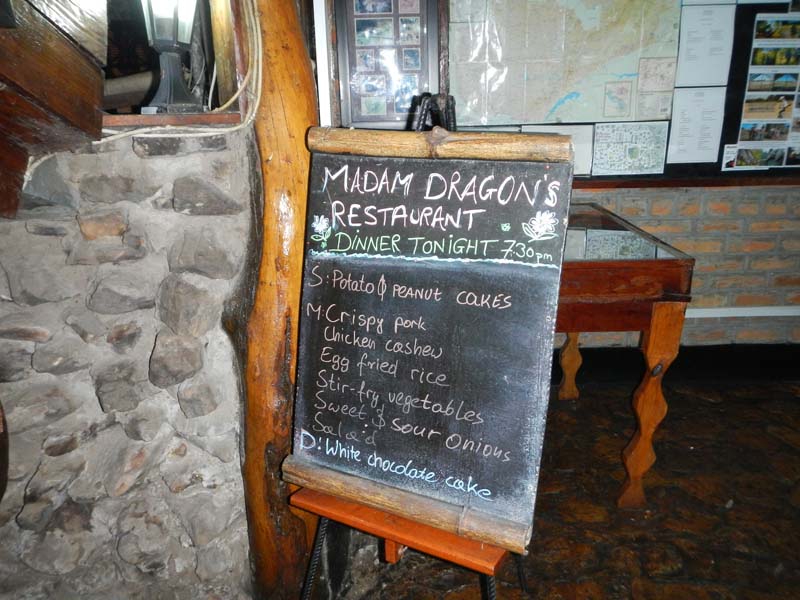 MADAM DRAGON'S
RESTAURANT
DINNER TONIGHT 7:30pm
S: Potato & PEANUT CAKES
M: Crispy pork
Chicken cashew
Egg fried rice
Stir-fry vegetables
Sweet & sour onions
Salad
D: White chocolate cake